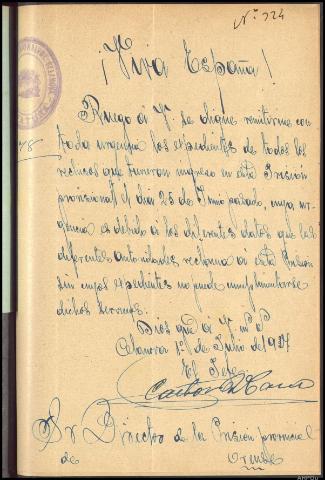 Nº 324
¡Viva España!
Ruego a V. se digne remitirme con
toda urgencia los expedientes de todos los
reclusos que tuvieron ingreso en esta Prisión
provisional el día 25 de Junio pasado, cuya ur-
gencia es debido a los diferentes datos que las
diferentes autoridades reclaman a esta Prisión
sin cuyos expedientes no puede cumplimentarse
dichos servicios.
Dios gue a V. m. a.
Celanova 1º de Julio de 1937
El Jefe
Sr Director de la Prisión provincial
de Orense